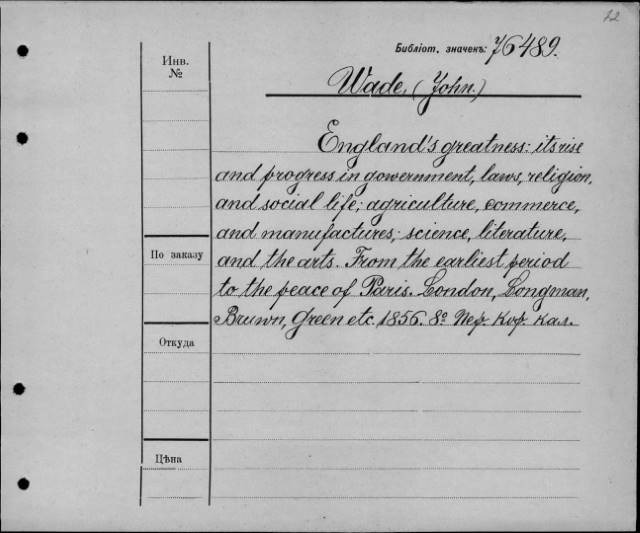 12
Библіот. значекъ: 76489.
Инв.
№
Wade, (John.)
England's greatness: its rise
and progress in gowernment, laws, religion,
and social life; agriculture, commerce,
and manufactures; science, literature,
По заказу
and the arts. From the earliest period
to the peace of Paris. London, Longman,
Bruwn, Green etc. 1856. 8º Пер. Кор. кал.
Откуда
Цѣна